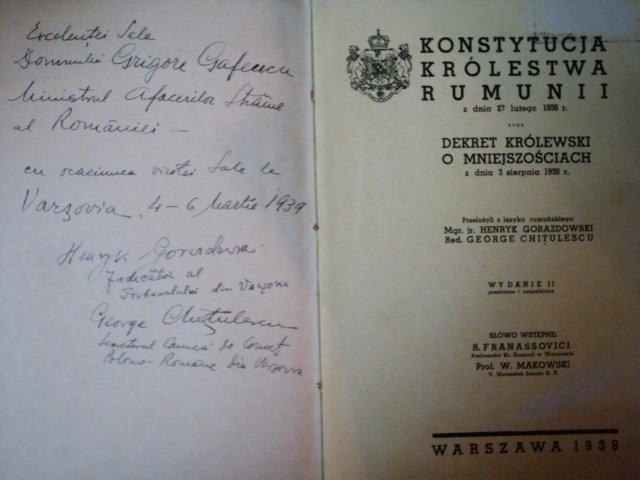 Excelenței Sale
Domnului Grigore Gafencu
Ministrul Afacerilor Străine
al României —
cu ocaziunea vizitei Sale la
Varșovia, 4-6 Martie 1939
Henryk Gorazdowski
Judecător al
Tribunalului din Varșovia
George Chițulescu
Secretarul Camerei de Comerț
Polono-Române din Varșovia
KONSTYTUCJA
KRÓLESTWA
RUMUNII
z dnia 27 lutego 1938 r.
oraz
DEKRET KRÓLEWSKI
O MNIEJSZOŚCIACH
z dnia 3 sierpnia 1938 r.
Przełożyli z języka rumuńskiego
Mgr. jr. HENRYK GORAZDOWSKI
Red. GEORGE CHIȚULESCU
WYDANIE II
przejrzane i uzupełnione
SŁOWO WSTĘPNE:
R. FRANASSOVICI
Ambasador Kr. Rumunii w Warszawie
Prof. W. MAKOWSKI
V. Marszałek Senatu R. P.
WARSZAWA 1938